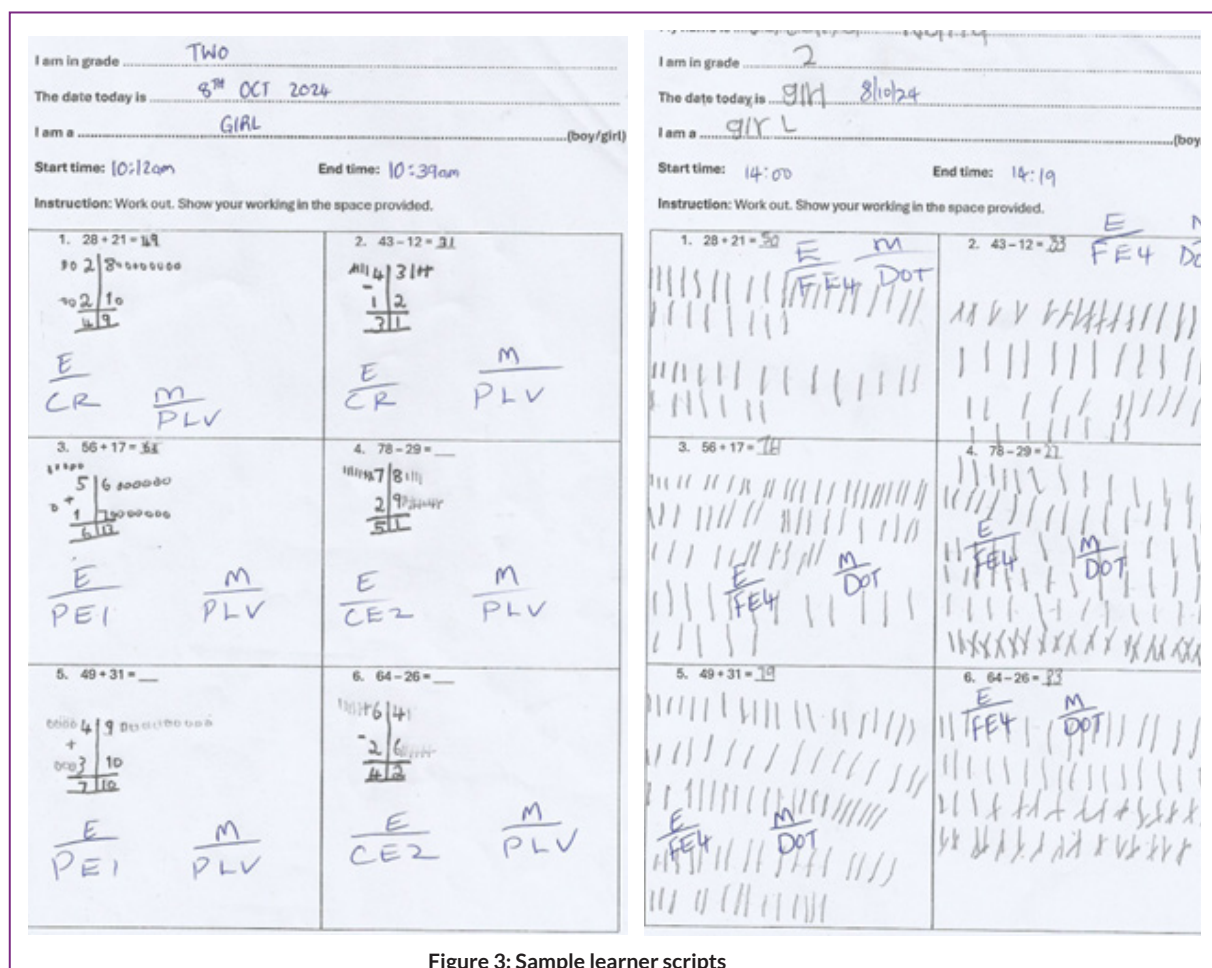 I am in grade TWO
The date today is 8TH OCT 2024
I am a GIRL (boy/girl)
Start time: 10:12am End time: 10:39am
Instruction: Work out. Show your working in the space provided.
1. 28 + 21 = 49
2 8
2 10
4 9
E
CR
M
PLV
2. 43 – 12 = 31
4 3
-
1 2
3 1
E
CR
M
PLV
3. 56 + 17 =
5 6
+
1
6 13
E
PE1
M
PLV
4. 78 – 29 = __
7 8
2 9
5 1
E
CE2
M
PLV
5. 49 + 31 = __
4 9
+
3 10
7 10
E
PE1
M
PLV
6. 64 – 26 = __
6 4
-
2 6
4 2
E
CE2
M
PLV
I am in grade 2
The date today is girl 8/10/24
I am a girL (boy
Start time: 14:00 End time: 14:19
Instruction: Work out. Show your working in the space provided.
1. 28 + 21 = 50
E
FE4
M
DOT
2. 43 – 12 = 33
E
FE4
DO
3. 56 + 17 =
E
FE4
M
DOT
4. 78 – 29 =
E
FE4
M
DOT
5. 49 + 31 =
E
FE4
M
DOT
6. 64 – 26 =
E
FE4
M
DOT
Figure 3: Sample learner scripts